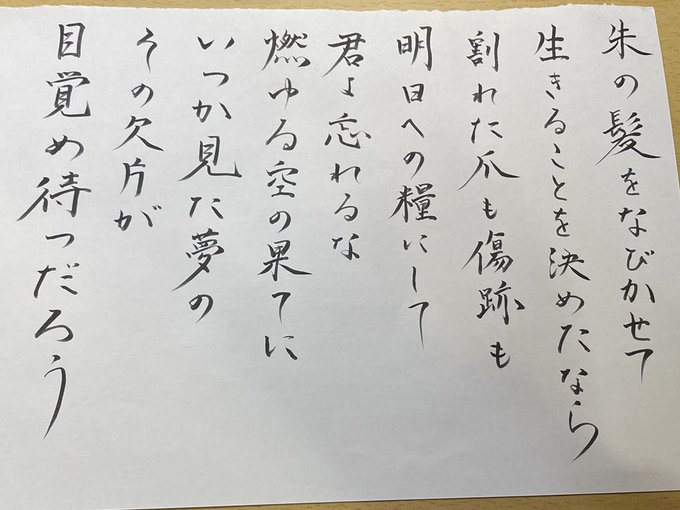 朱の髪をなびかせて
生きることを決めたなら
割れた爪も傷跡も
明日への糧にして
君よ忘れるな
燃ゆる空の果てに
いつか見た夢の
その欠片が
目覚め待つだろう